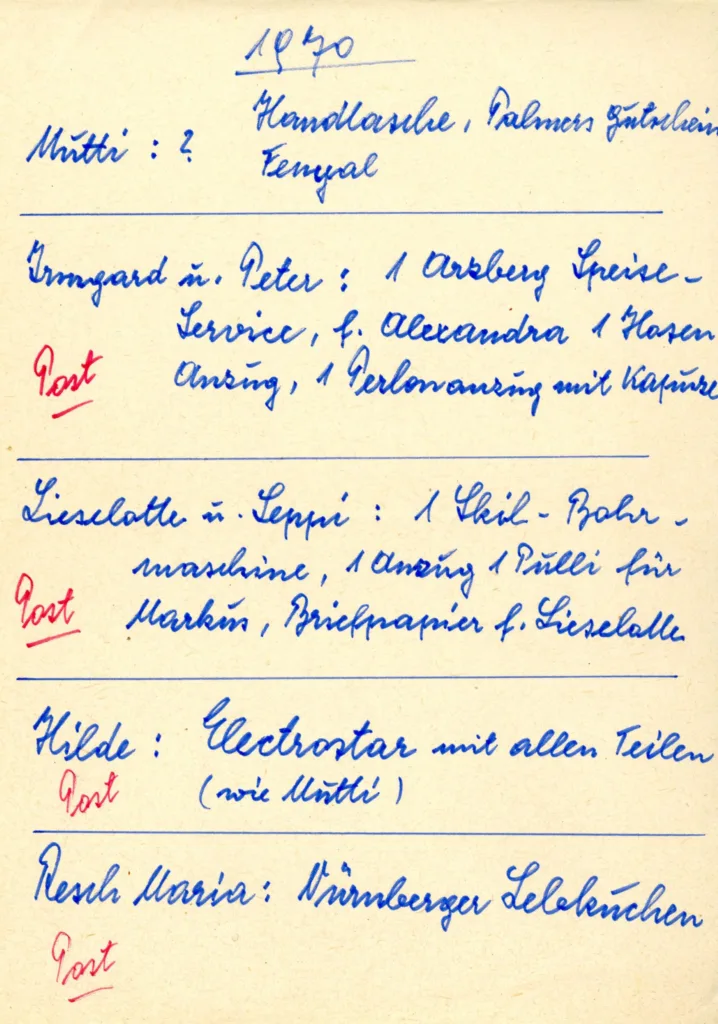 1970
Handtasche, Palmers Gutschein
Mutti : ?
Fengal
Irmgard u. Peter : 1 Arzberg Speise-
Service, f. Alexandra 1 Hosen
Post
Anzug, 1 Perlonanzug mit Kapuze
Lieselotte u. Seppi : 1 Skil - Bohr -
maschine, 1 Anzug 1 Pulli für
Post
Markus, Briefpapier f. Lieselotte
Hilde : Electrostar mit allen Teilen
Post
(wie Mutti)
Resch Maria : Nürnberger Lebkuchen
Post